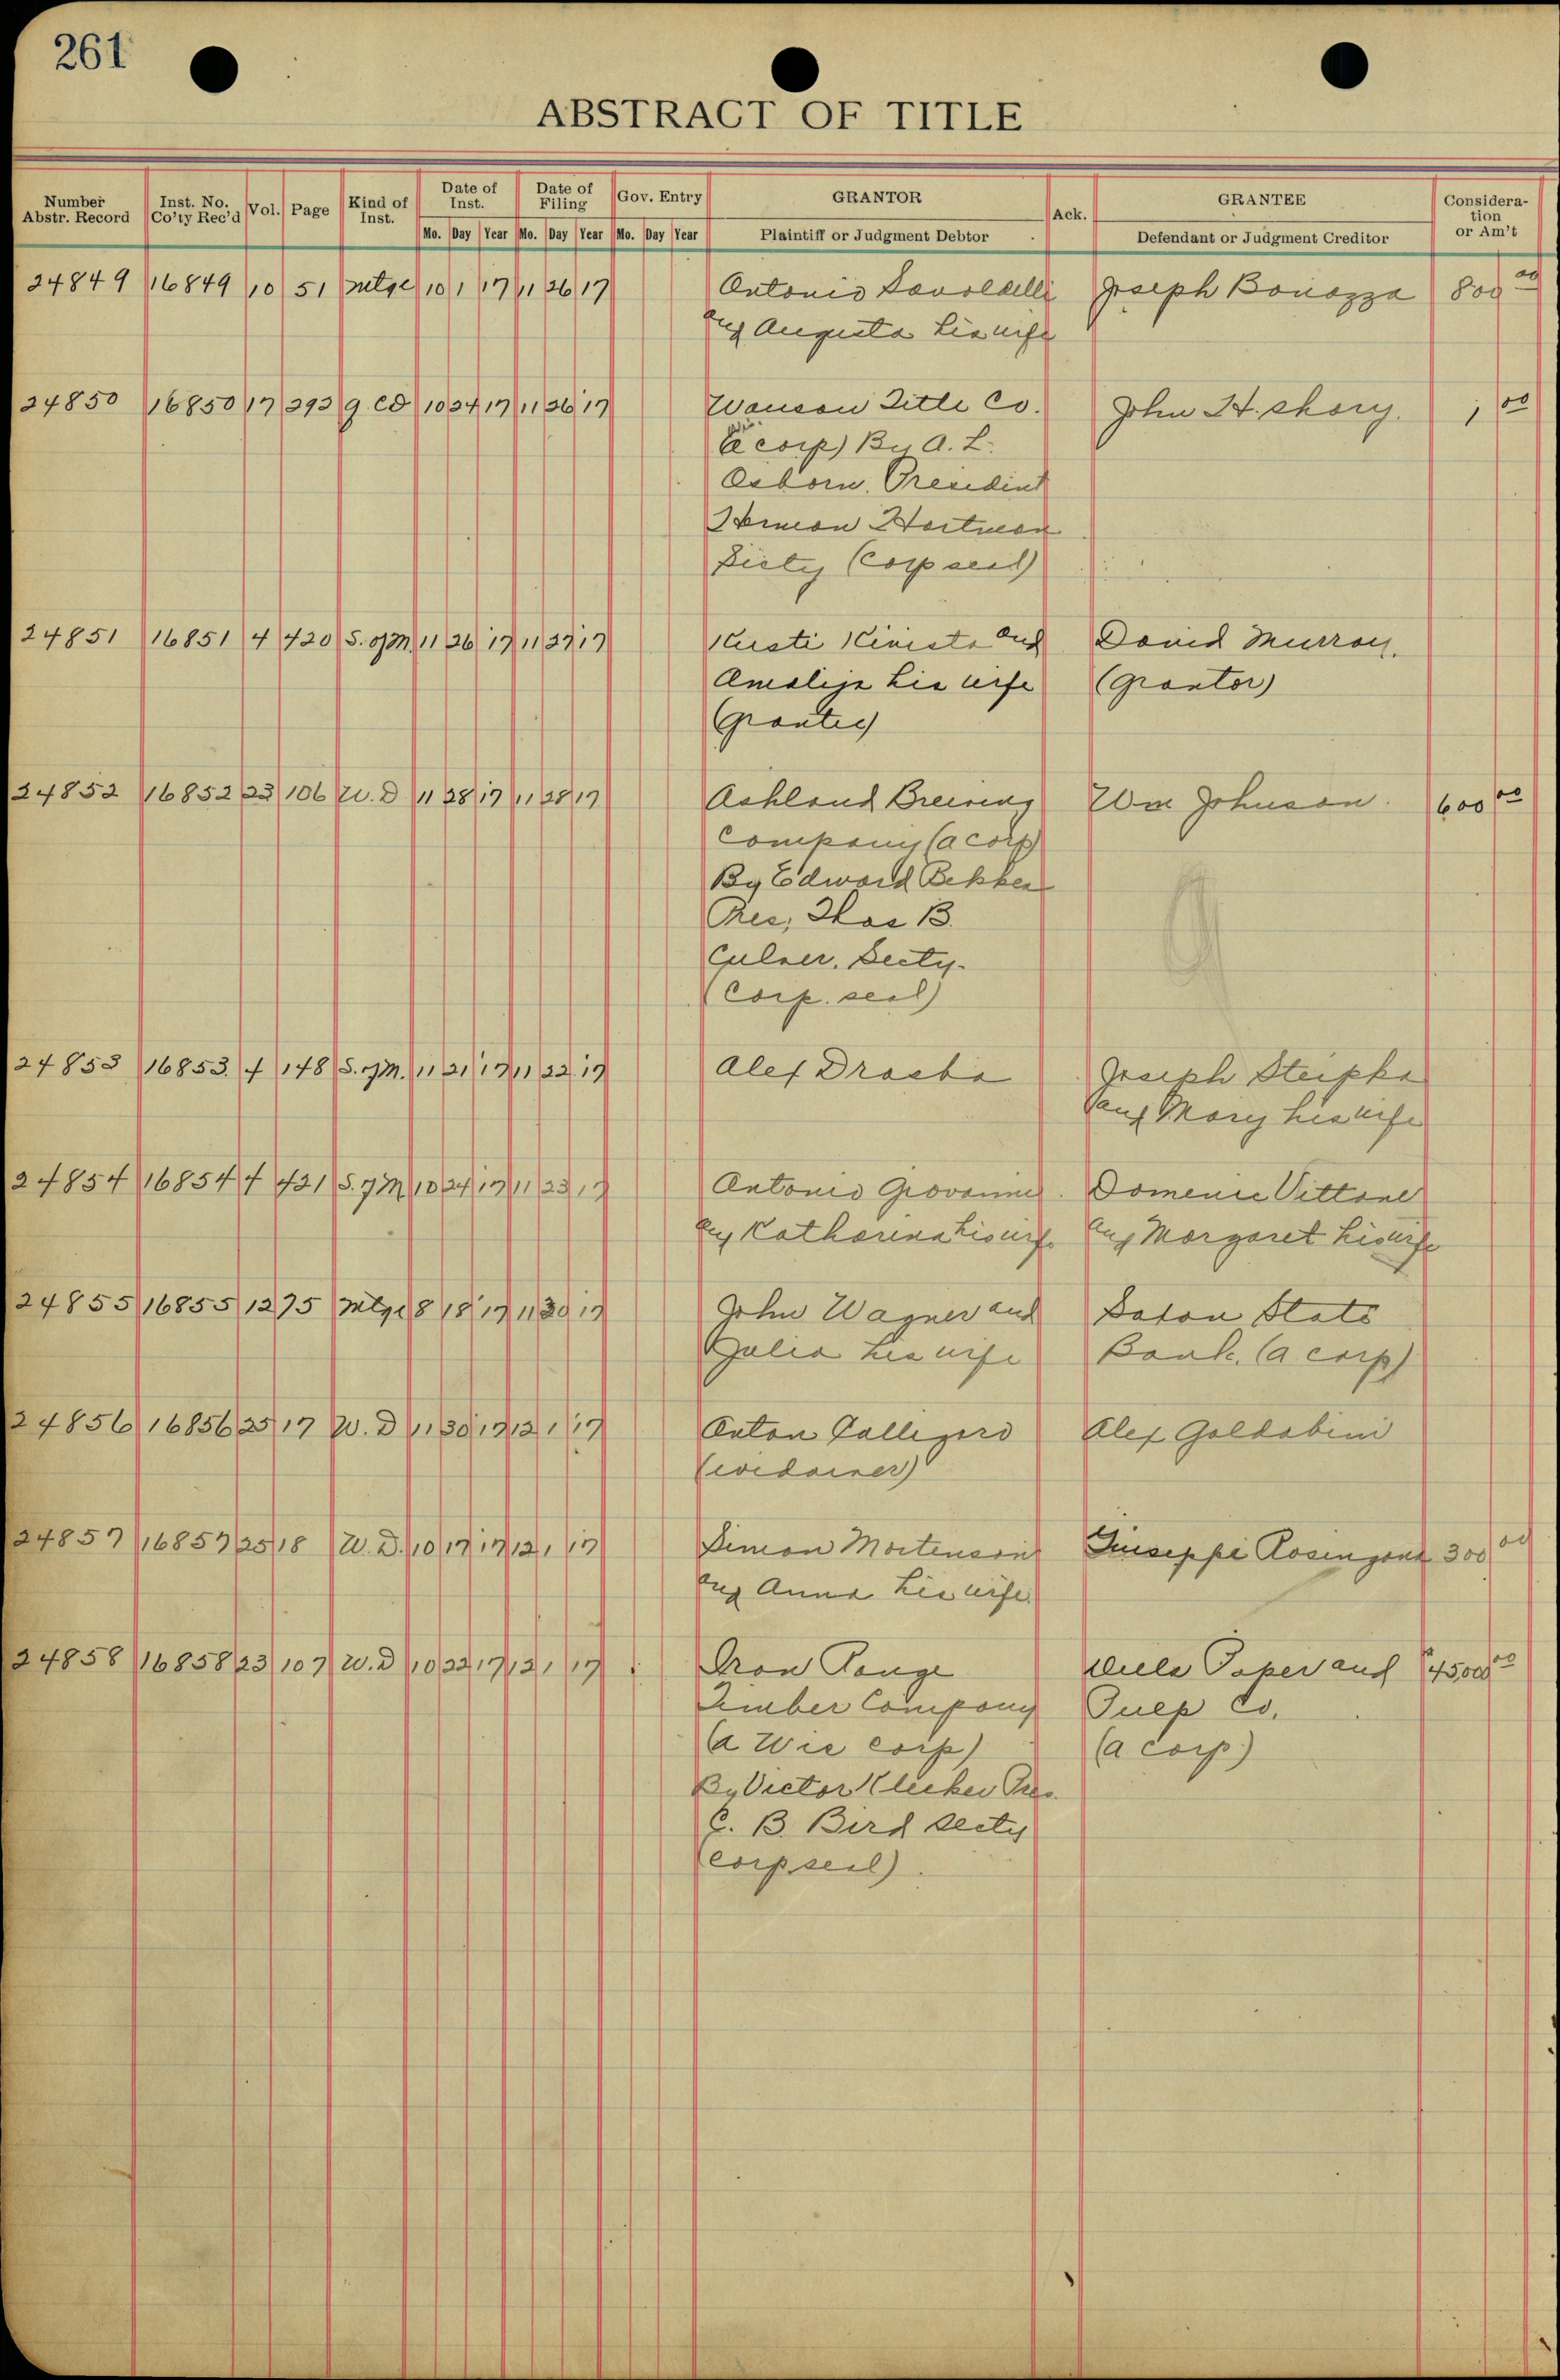 261
ABSTRACT OF TITLE
Number Abstr. Record | Inst. No. Co'ty Rec'd | Vol. | Page | Kind of Inst. | Date of Inst. | Date of Filing | Gov. Entry | GRANTOR | Ack. | GRANTEE | Consideration or Am't
Mo. Day Year | Mo. Day Year | Mo. Day Year | Plaintiff or Judgment Debtor | Defendant or Judgment Creditor
24849 16849 10 51 Mtge 10 1 17 11 26 17 Antonio Savoldelli Joseph Bonazza 800 00
and Augusta his wife
24850 16850 17 292 Q. CD 10 24 17 11 26 17 Wausau Title Co. John H. Shory. 1 00
(a Wis. corp) By A. L.
Osborn. President
Herman Hartman
Secty (Corp seal)
24851 16851 4 420 S. of M. 11 26 17 11 27 17 Kusti Kinisto and David Murray.
Amalija his wife (Grantor)
(Grantee)
24852 16852 23 106 W. D 11 28 17 11 28 17 Ashland Brewing Wm Johnson. 600 00
Company (a corp)
By Edward
Pres, Thos B.
Culver. Secty.
(Corp. seal)
24853 16853 4 148 S. of M. 11 21 17 11 22 17 Alex Joseph Steipka
and Mary his wife
24854 16854 4 421 S. of M 10 24 17 11 23 17 Antonio Giovanni Domenic Vittone
and Katharina his wife and Margaret his wife
24855 16855 12 75 Mtge 8 18 17 11 30 17 John Wagner and Saxon State
Julia his wife Bank. (a corp)
24856 16856 25 17 W. D 11 30 17 12 1 17 Anton Alex Goldabini
(widower)
24857 16857 25 18 W. D. 10 17 17 12 1 17 Simon Mortenson Giuseppe 300 00
and Anna his wife.
24858 16858 23 107 W. D 10 22 17 12 1 17 Iron Range Paper and 45,000 00
Timber Company Pulp Co.
(a Wis corp) (a corp)
By Victor Pres.
C. B. Bird Secty
(corp seal).